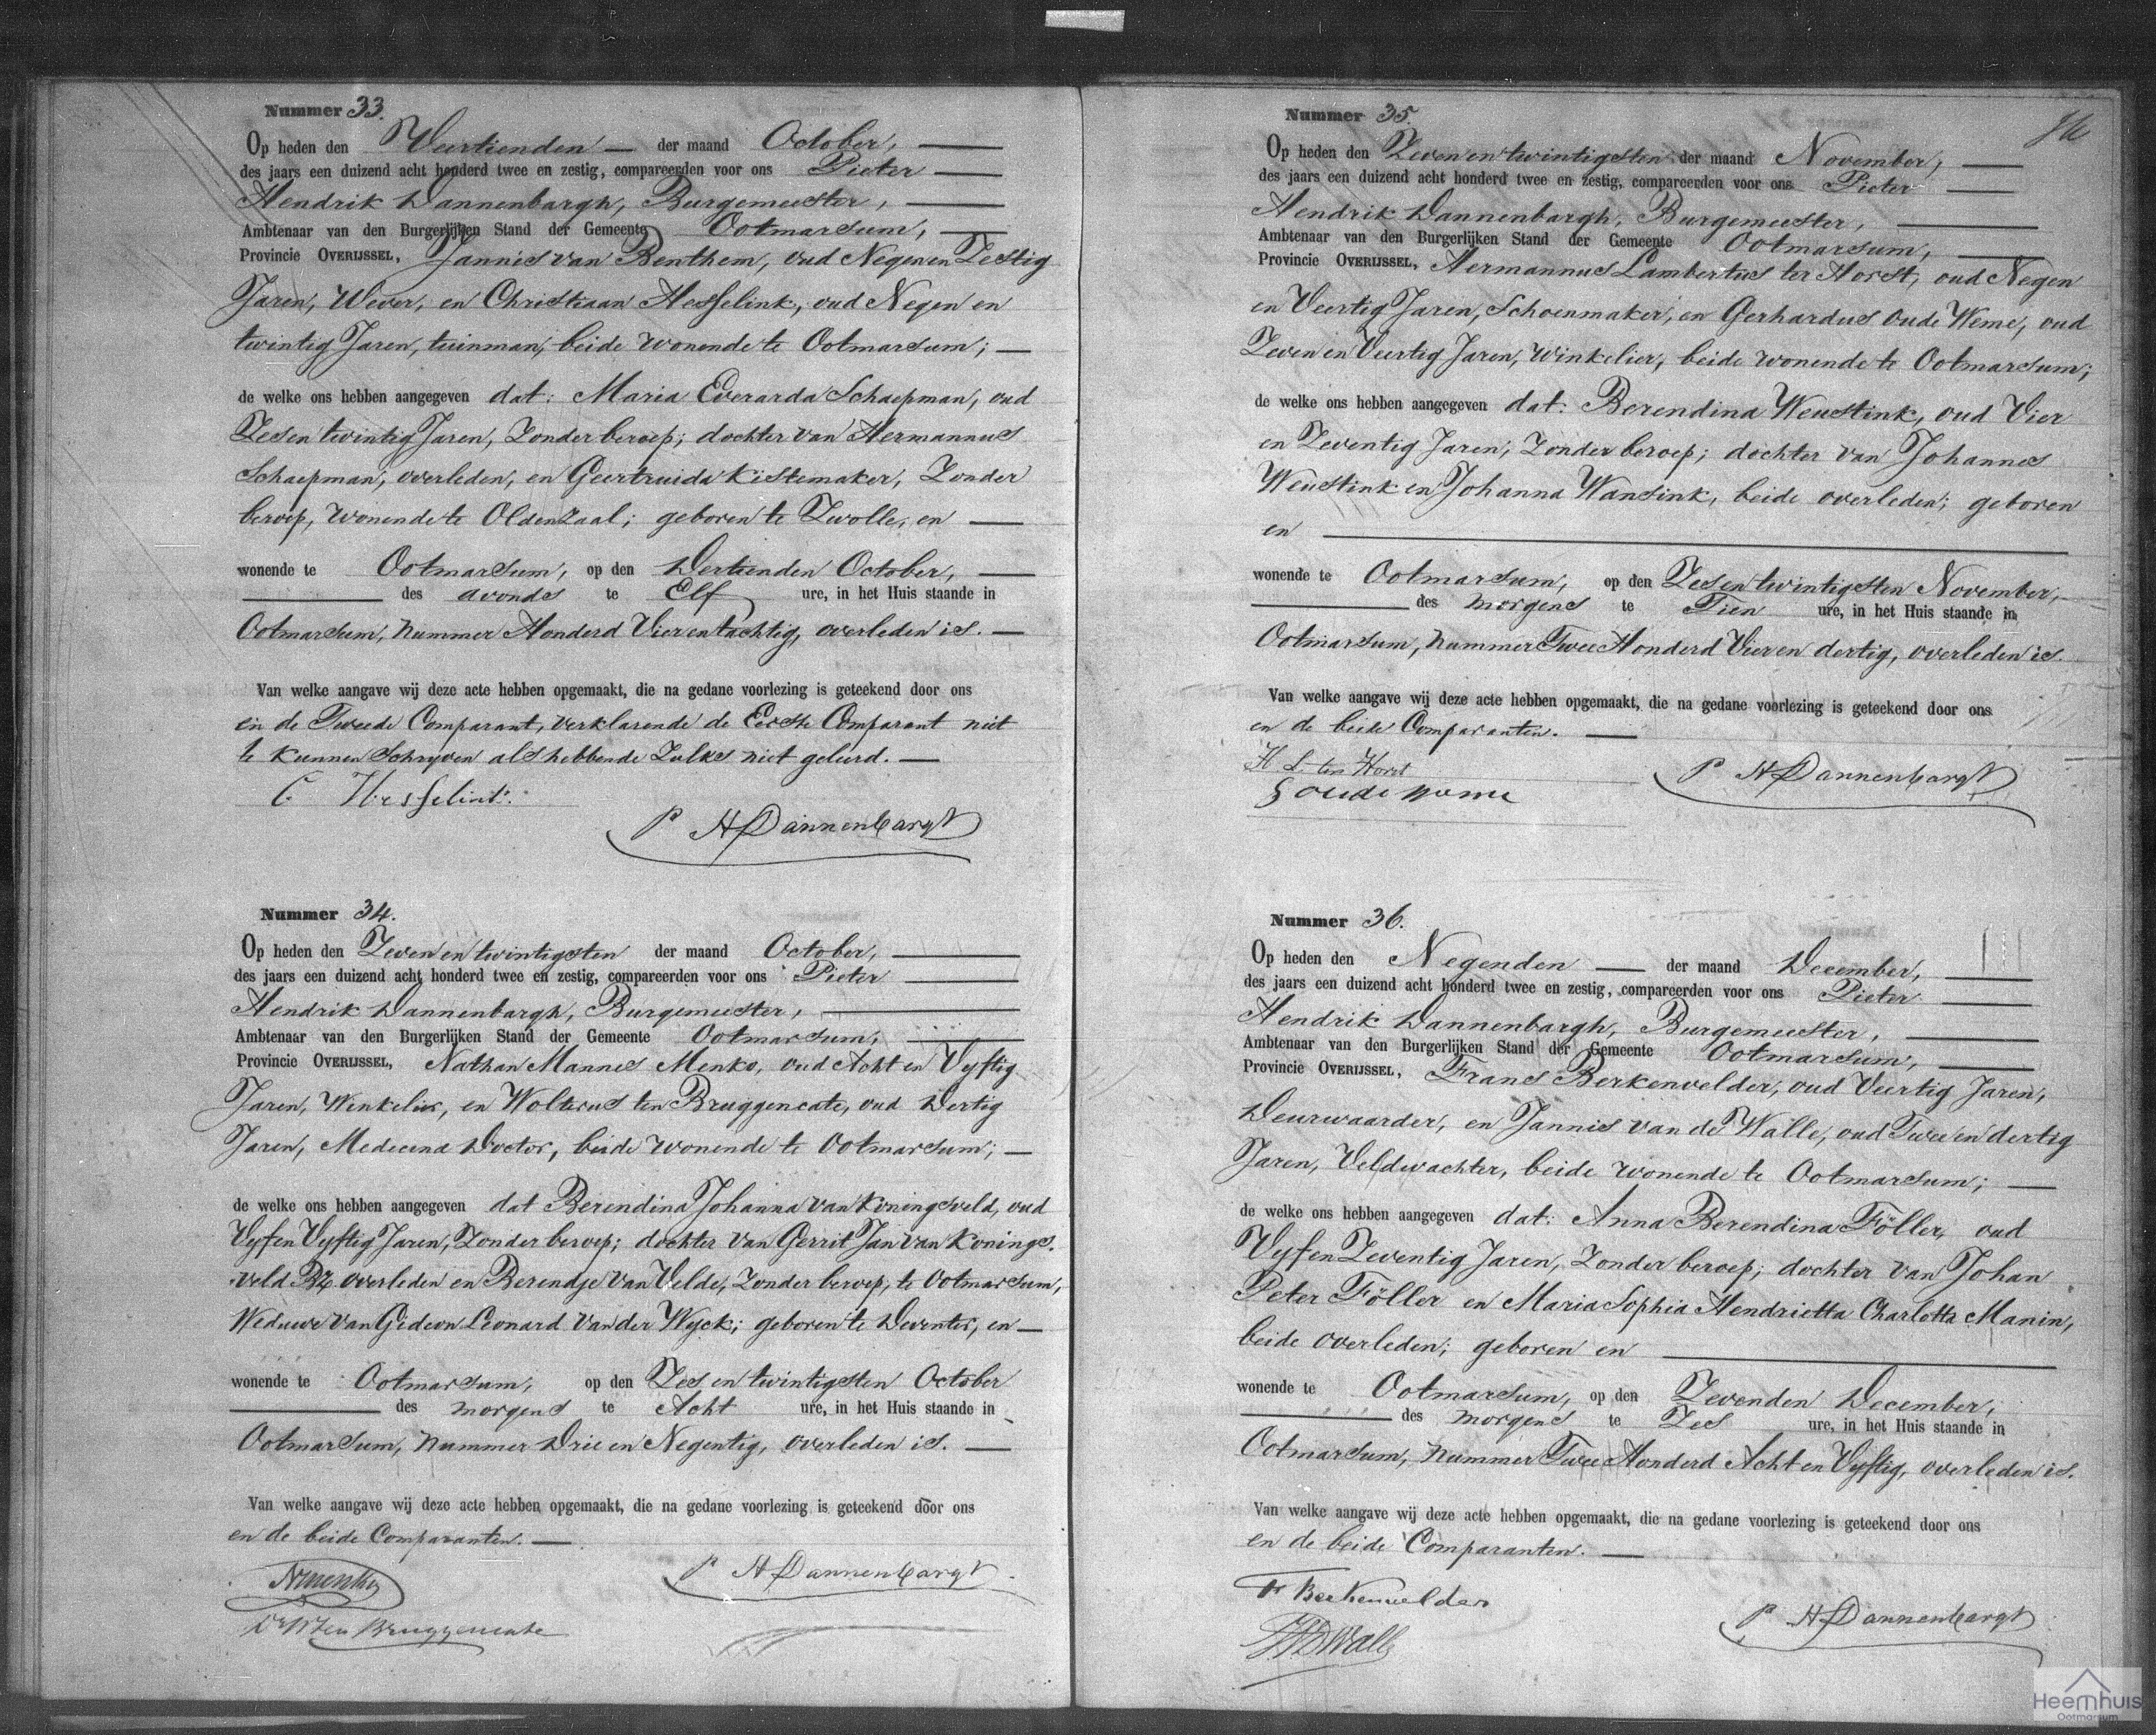 Nummer 33.
Op heden den Veertienden der maand October,
des jaars een duizend acht honderd twee en zestig, compareerden voor ons Pieter
Hendrik Dannenbargh, Burgemeester,
Ambtenaar van den Burgerlijken Stand der Gemeente Ootmarsum,
Provincie OVERIJSSEL, Jannis van Benthem, oud Negen en Zestig
Jaren, Wever, en Christiaan Hesselink, oud Negen en
twintig Jaren, tuinman, beide wonende te Ootmarsum;
de welke ons hebben aangegeven dat: Maria Everarda Schaepman, oud
Zes en twintig Jaren, Zonder beroep; dochter van Hermannus
Schaepman, overleden, en Geertruida Kistemaker, Zonder
beroep, wonende te Oldenzaal; geboren te Zwolle, en
wonende te Ootmarsum, op den Dertienden October,
des avonds te Elf ure, in het Huis staande in
Ootmarsum, nummer Honderd Vier en tachtig, overleden is.
Van welke aangave wij deze acte hebben opgemaakt, die na gedane voorlezing is geteekend door ons
en de Tweede Comparant, verklarende de Eerste Comparant niet
te kunnen Schryven als hebbende Zulks niet geleerd.
C Hesselink
P H Dannenbargh
Nummer 34.
Op heden den Zeven en twintigsten der maand October,
des jaars een duizend acht honderd twee en zestig, compareerden voor ons Pieter
Hendrik Dannenbargh, Burgemeester,
Ambtenaar van den Burgerlijken Stand der Gemeente Ootmarsum,
Provincie OVERIJSSEL, Nathan Mannes Menko, oud Acht en Vyftig
Jaren, Winkelier, en Wolterus ten Bruggencate, oud Dertig
Jaren, Medecina Doctor, beide wonende te Ootmarsum;
de welke ons hebben aangegeven dat Berendina Johanna van Koningsveld, oud
Vyf en Vyftig Jaren, Zonder beroep; dochter van Gerrit Jan van Konings-
veld BZ. overleden en Berendje van Velde, Zonder beroep, te Ootmarsum,
Weduwe van Gideon Leonard van der Wyck; geboren te Deventer, en
wonende te Ootmarsum, op den Zes en twintigsten October
des morgens te Acht ure, in het Huis staande in
Ootmarsum, nummer Drie en Negentig, overleden is.
Van welke aangave wij deze acte hebben opgemaakt, die na gedane voorlezing is geteekend door ons
en de beide Comparanten.
NMenko
P H Dannenbargh
Dr W ten Bruggencate
Nummer 35.
Op heden den Zeven en twintigsten der maand November,
des jaars een duizend acht honderd twee en zestig, compareerden voor ons Pieter
Hendrik Dannenbargh, Burgemeester,
Ambtenaar van den Burgerlijken Stand der Gemeente Ootmarsum,
Provincie OVERIJSSEL, Hermannus Lambertus ter Horst, oud Negen
en Veertig Jaren, Schoenmaker, en Gerhardus Oude Weme, oud
Zeven en Veertig Jaren, Winkelier, beide wonende te Ootmarsum;
de welke ons hebben aangegeven dat: Berendina Weustink, oud Vier
en Zeventig Jaren, Zonder beroep; dochter van Johannes
Weustink en Johanna Wansink, beide overleden; geboren
en
wonende te Ootmarsum, op den Zes en twintigsten November,
des morgens te Tien ure, in het Huis staande in
Ootmarsum, nummer Twee Honderd Vier en dertig, overleden is.
Van welke aangave wij deze acte hebben opgemaakt, die na gedane voorlezing is geteekend door ons
en de beide Comparanten.
H L ter Horst
P H Dannenbargh
G oude weme
Nummer 36.
Op heden den Negenden der maand December,
des jaars een duizend acht honderd twee en zestig, compareerden voor ons Pieter
Hendrik Dannenbargh, Burgemeester,
Ambtenaar van den Burgerlijken Stand der Gemeente Ootmarsum,
Provincie OVERIJSSEL, Frans Berkenvelder, oud Veertig Jaren,
Deurwaarder, en Jannis van de Walle, oud Twee en dertig
Jaren, Veldwachter, beide wonende te Ootmarsum;
de welke ons hebben aangegeven dat: Anna Berendina Föller, oud
Vyf en Zeventig Jaren, Zonder beroep; dochter van Johan
Peter Föller en Maria Sophia Hendrietta Charlotta Manin,
beide overleden; geboren en
wonende te Ootmarsum, op den Zevenden December,
des morgens te Zes ure, in het Huis staande in
Ootmarsum, nummer Twee Honderd Acht en Vyftig, overleden is.
Van welke aangave wij deze acte hebben opgemaakt, die na gedane voorlezing is geteekend door ons
en de beide Comparanten.
F Berkenvelder
P H Dannenbargh
Heemhuis
Ootmarsum